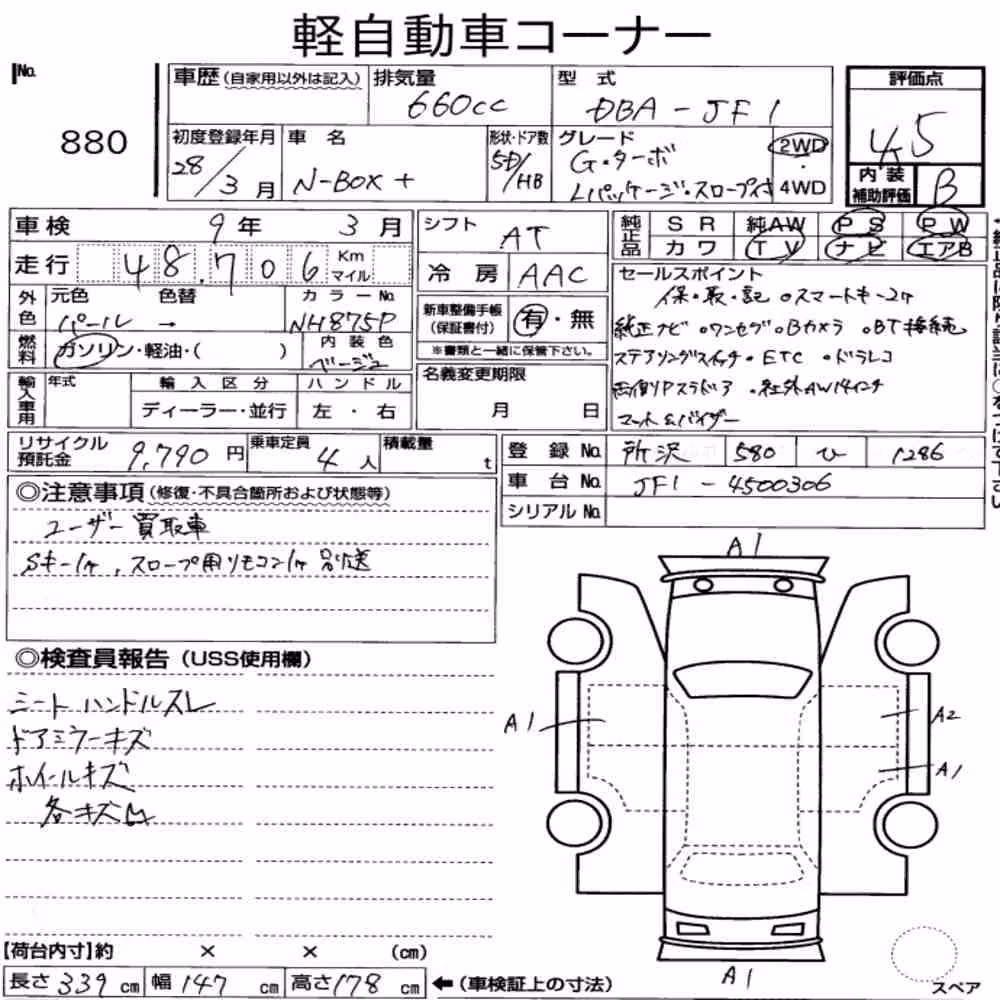 軽自動車コーナー
No. 880
車歴 (自家用以外は記入) 排気量 660cc 型式 DBA-JF1 評価点 4.5
初度登録年月 28/3月 車名 N-BOX+ 形状・ドア数 5D/HB グレード G・ターボ Lパッケージ・スロープ付 2WD・4WD 内装補助評価 B
車検 9年 3月 シフト AT 純正品 SR 純AW PS PW
カワ TV ナビ エアB
走行 48,706 Km マイル 冷房 AAC
セールスポイント
保・取・記 ○スマートキー2ケ
純正ナビ ○ワンセグ ○Bカメラ ○BT接続
ステアリングスイッチ・ETC ・ドラレコ
両側Pスラドア ・社外AW14インチ
マット&バイザー
外色 元色 パール 色替 → カラーNo. NH875P 新車整備手帳(保証書付) 有・無
※書類と一緒に保管下さい。
燃料 ガソリン・軽油・( ) 内装色 ベージュ
名義変更期限 月 日
輸入車用 年式 輸入区分 ハンドル
ディーラー・並行 左・右
リサイクル預託金 9,790円 乗車定員 4人 積載量 t
登録No. 所沢 580 ひ 1286
車台No. JF1-4500306
シリアルNo.
◎注意事項 (修復・不具合箇所および状態等)
ユーザー買取車
Sキー1ケ、スロープ用リモコン1ケ 別送
◎検査員報告 (USS使用欄)
シートハンドルスレ
ドアミラーキズ
ホイールキズ
各キズ凹
A1
A1
A2
A1
A1
【荷台内寸】約 × × (cm)
長さ 339 cm 幅 147 cm 高さ 178 cm ←(車検証上の寸法)
スペア